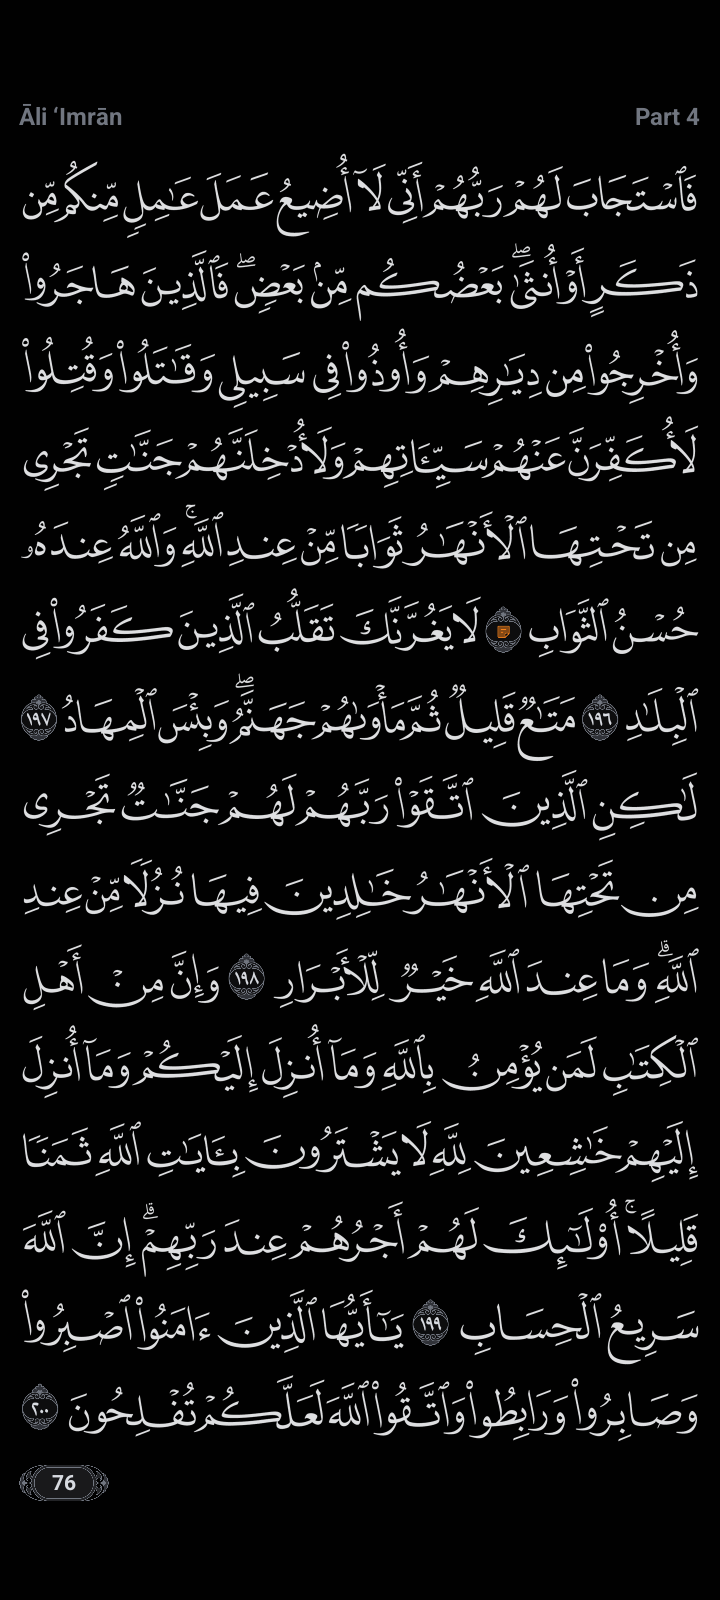 Āli ‘Imrān Part 4
فَٱسْتَجَابَ لَهُمْ رَبُّهُمْ أَنِّى لَآ أُضِيعُ عَمَلَ عَـٰمِلٍ مِّنكُم مِّن
ذَكَرٍ أَوْ أُنثَىٰ ۖ بَعْضُكُم مِّنۢ بَعْضٍ ۖ فَٱلَّذِينَ هَاجَرُوا۟
وَأُخْرِجُوا۟ مِن دِيَـٰرِهِمْ وَأُوذُوا۟ فِى سَبِيلِى وَقَـٰتَلُوا۟ وَقُتِلُوا۟
لَأُكَفِّرَنَّ عَنْهُمْ سَيِّـَٔاتِهِمْ وَلَأُدْخِلَنَّهُمْ جَنَّـٰتٍ تَجْرِى
مِن تَحْتِهَا ٱلْأَنْهَـٰرُ ثَوَابًا مِّنْ عِندِ ٱللَّهِ ۚ وَٱللَّهُ عِندَهُۥ
حُسْنُ ٱلثَّوَابِ لَا يَغُرَّنَّكَ تَقَلُّبُ ٱلَّذِينَ كَفَرُوا۟ فِى
ٱلْبِلَـٰدِ ١٩٦ مَتَـٰعٌ قَلِيلٌ ثُمَّ مَأْوَىٰهُمْ جَهَنَّمُ ۖ وَبِئْسَ ٱلْمِهَادُ ١٩٧
لَـٰكِنِ ٱلَّذِينَ ٱتَّقَوْا۟ رَبَّهُمْ لَهُمْ جَنَّـٰتٌ تَجْرِى
مِن تَحْتِهَا ٱلْأَنْهَـٰرُ خَـٰلِدِينَ فِيهَا نُزُلًا مِّنْ عِندِ
ٱللَّهِ ۗ وَمَا عِندَ ٱللَّهِ خَيْرٌ لِّلْأَبْرَارِ ١٩٨ وَإِنَّ مِنْ أَهْلِ
ٱلْكِتَـٰبِ لَمَن يُؤْمِنُ بِٱللَّهِ وَمَآ أُنزِلَ إِلَيْكُمْ وَمَآ أُنزِلَ
إِلَيْهِمْ خَـٰشِعِينَ لِلَّهِ لَا يَشْتَرُونَ بِـَٔايَـٰتِ ٱللَّهِ ثَمَنًا
قَلِيلًا ۚ أُو۟لَـٰٓئِكَ لَهُمْ أَجْرُهُمْ عِندَ رَبِّهِمْ ۗ إِنَّ ٱللَّهَ
سَرِيعُ ٱلْحِسَابِ ١٩٩ يَـٰٓأَيُّهَا ٱلَّذِينَ ءَامَنُوا۟ ٱصْبِرُوا۟
وَصَابِرُوا۟ وَرَابِطُوا۟ وَٱتَّقُوا۟ ٱللَّهَ لَعَلَّكُمْ تُفْلِحُونَ ٢٠٠
76